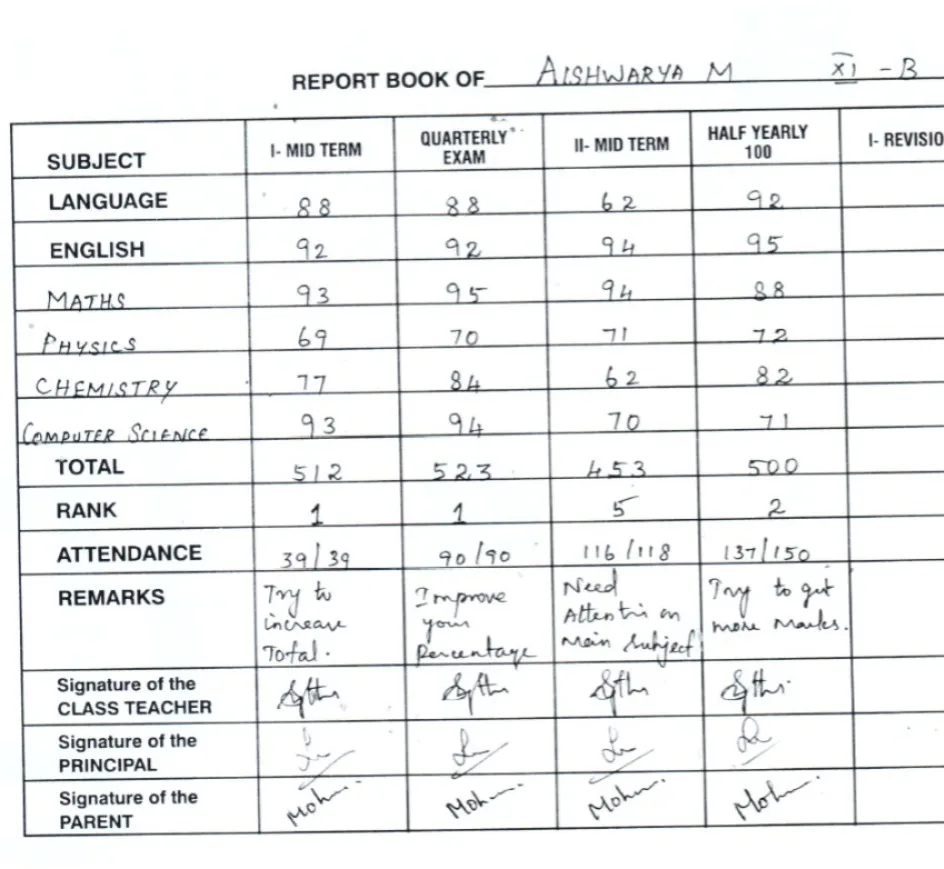 REPORT BOOK OF AISHWARYA M XI - B
SUBJECT I- MID TERM QUARTERLY EXAM II- MID TERM HALF YEARLY 100 I- REVISIO
LANGUAGE 88 88 62 92
ENGLISH 92 92 94 95
MATHS 93 95 94 88
PHYSICS 69 70 71 72
CHEMISTRY 77 84 62 82
COMPUTER SCIENCE 93 94 70 71
TOTAL 512 523 453 500
RANK 1 1 5 2
ATTENDANCE 39/39 90/90 116/118 137/150
REMARKS Try to increase Total. Improve your Percentage Need Attention on Main Subject Try to get more Marks.
Signature of the
CLASS TEACHER
Signature of the
PRINCIPAL
Signature of the
PARENT